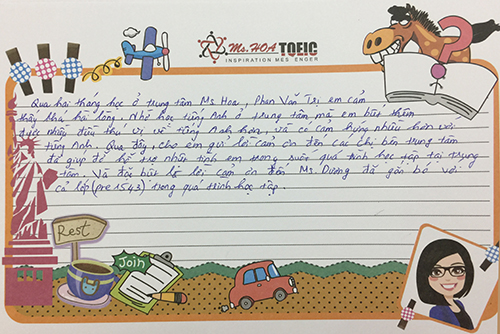 Ms.HOA TOEIC
INSPIRATION MESSENGER
Qua hai tháng học ở trung tâm Ms Hoa, Phan Văn Trị em cảm
thấy khá hài lòng. Nhờ học tiếng Anh ở trung tâm mà em biết thêm
được nhiều điều thú vị về tiếng Anh hơn, và có cảm hứng nhiều hơn với
tiếng Anh. Qua đây, cho em gửi lời cảm ơn đến các chị bên trung tâm
đã giúp đỡ hỗ trợ nhiệt tình em trong suốt quá trình học tập tại trung
tâm. Và đặc biệt là lời cảm ơn đến Ms. Dương đã gắn bó với
cả lớp (pre 1543) trong quá trình học tập.
Rest
Join